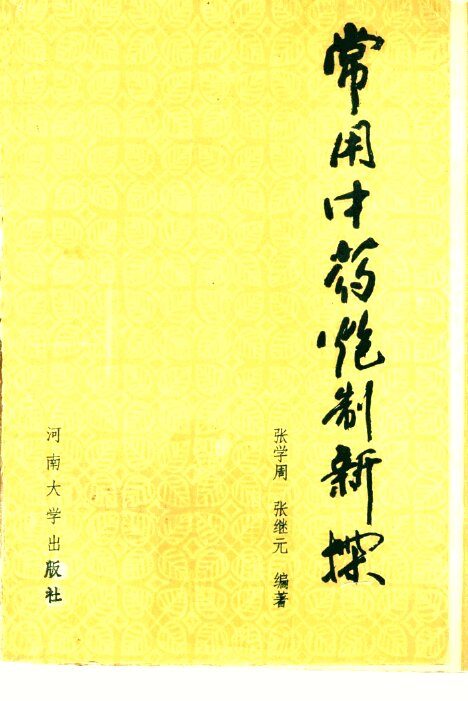 常用中药炮制新探
张学周 张继元 编著
河南大学出版社